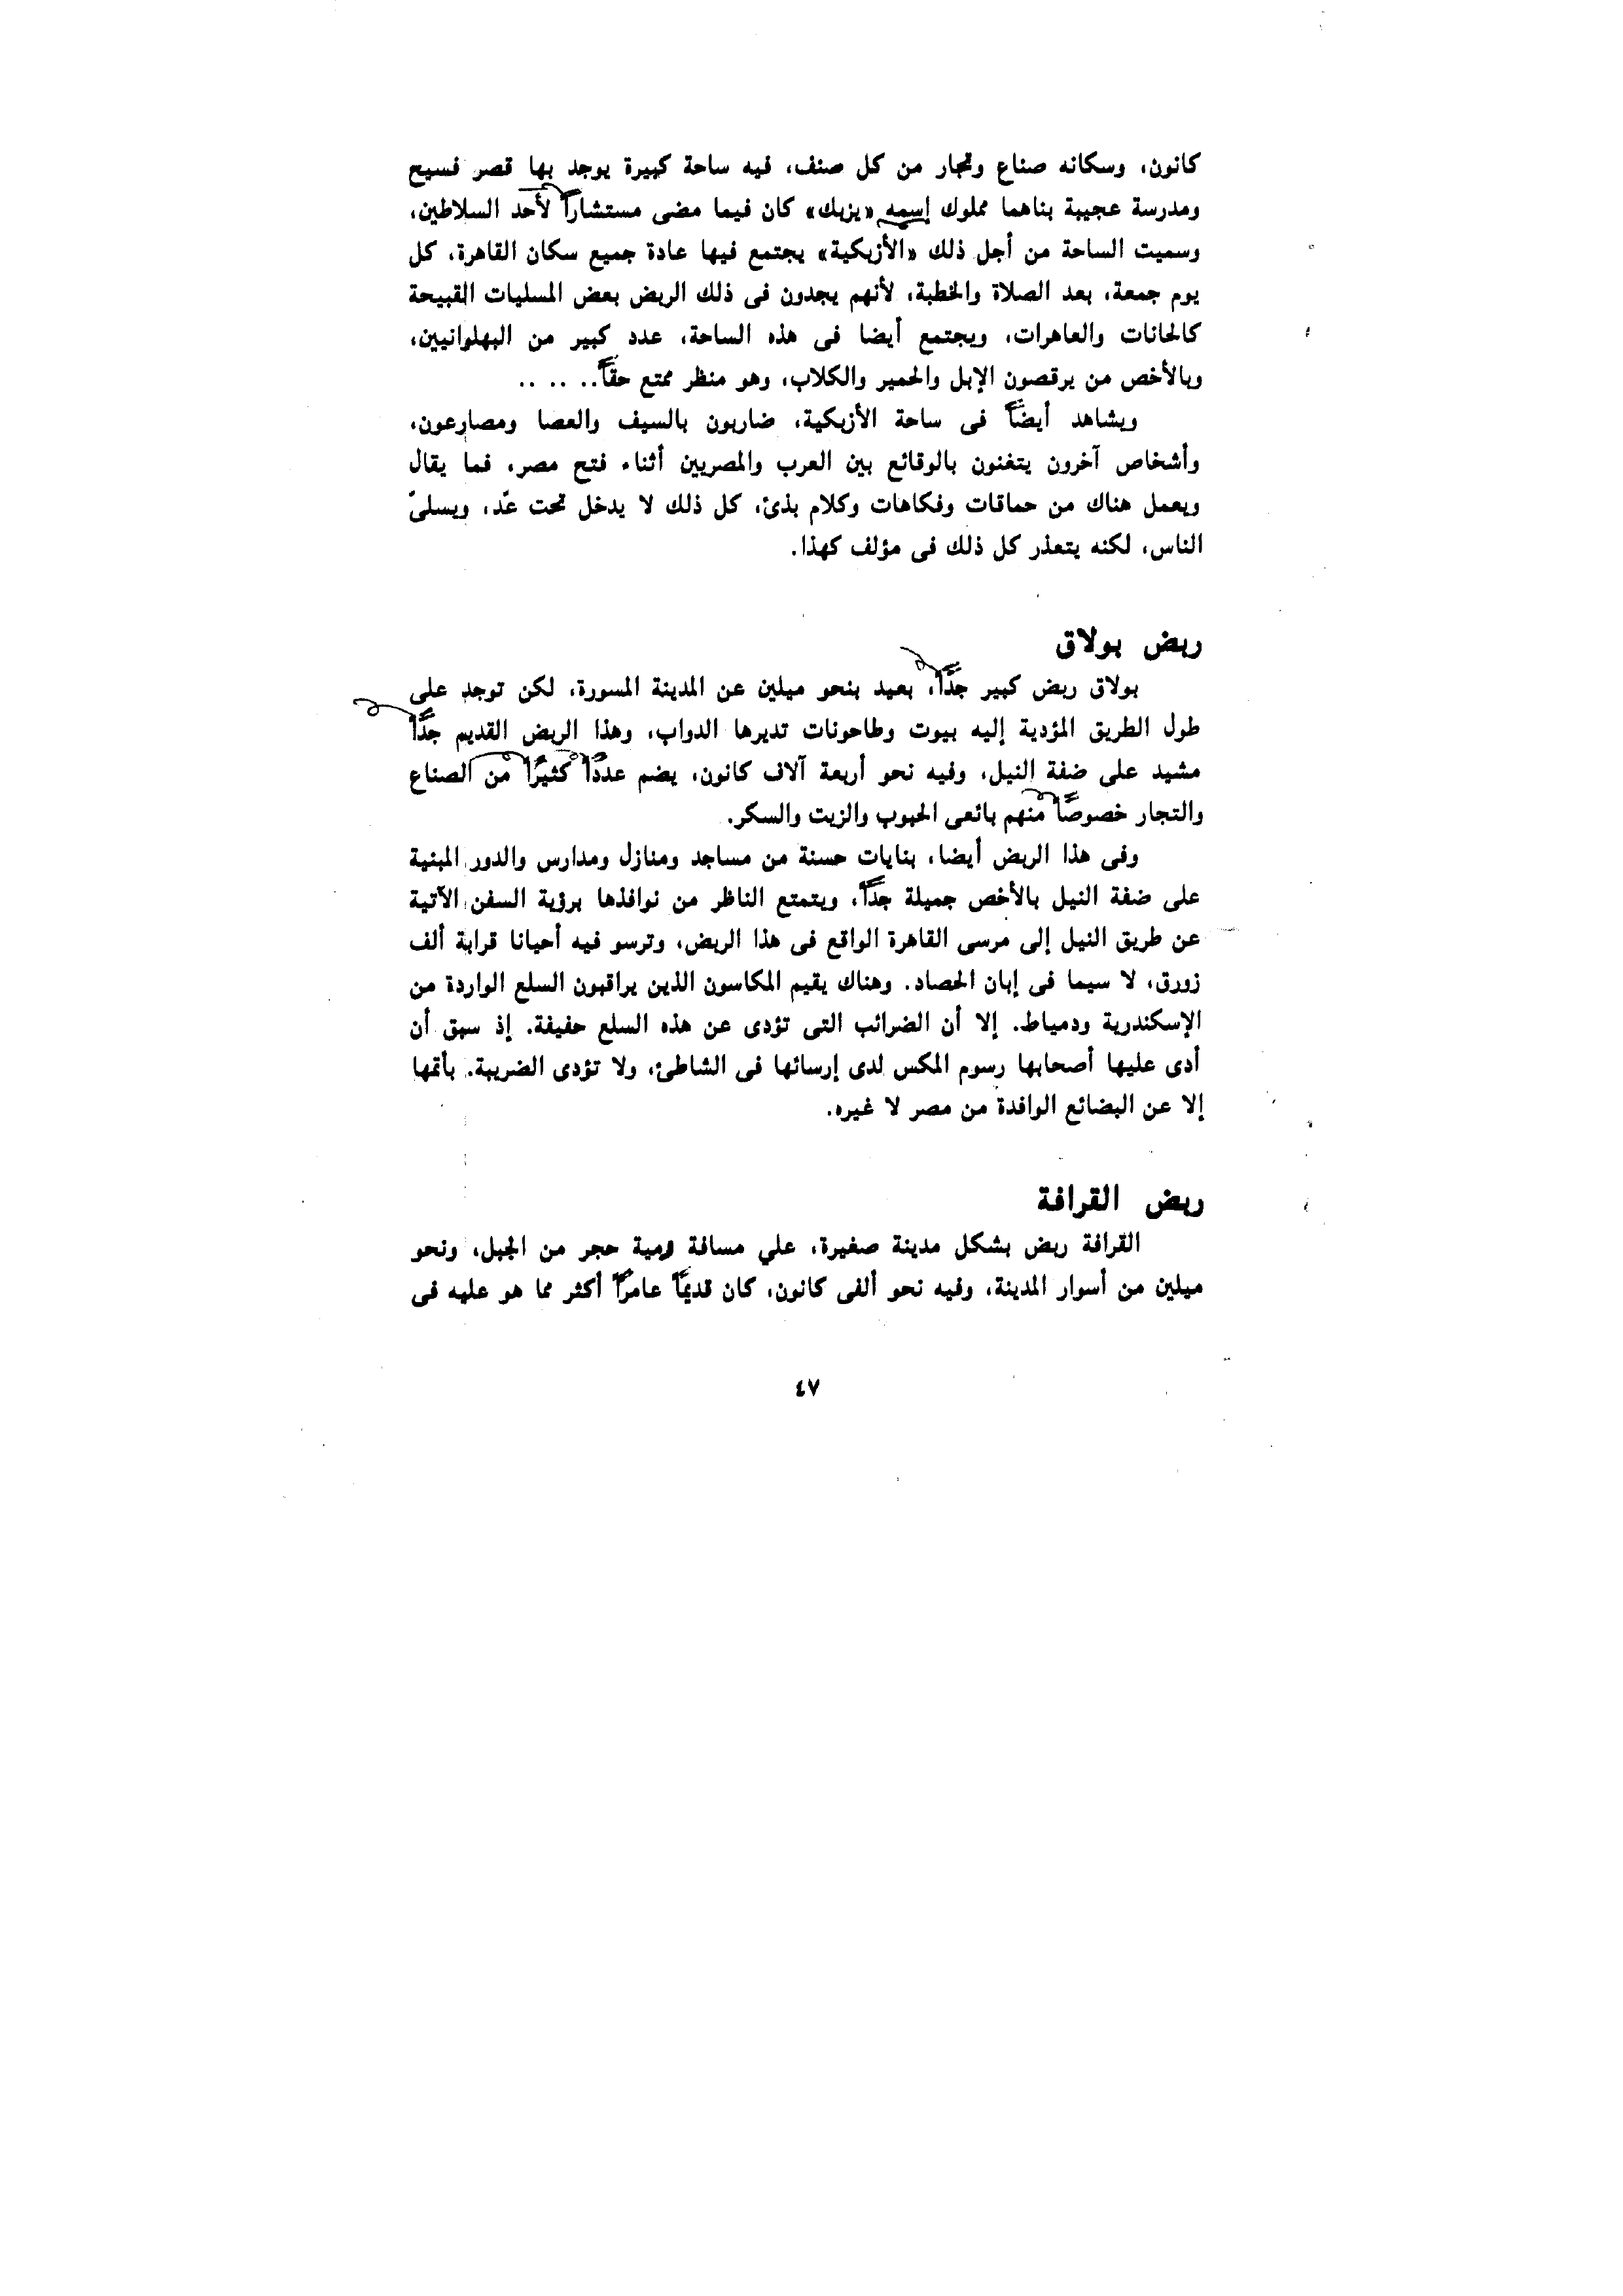 كانون، وسكانه صناع وتجار من كل صنف، فيه ساحة كبيرة يوجد بها قصر فسيح
ومدرسة عجيبة بناهما مملوك إسمه «يزبك» كان فيما مضى مستشاراً لأحد السلاطين،
وسميت الساحة من أجل ذلك «الأزبكية» يجتمع فيها عادة جميع سكان القاهرة، كل
يوم جمعة، بعد الصلاة والخطبة، لأنهم يجدون فى ذلك الربض بعض المسليات القبيحة
كالحانات والعاهرات، ويجتمع أيضا فى هذه الساحة، عدد كبير من البهلوانيين،
وبالأخص من يرقصون الإبل والحمير والكلاب، وهو منظر ممتع حقاً.. .. ..
ويشاهد أيضاً فى ساحة الأزبكية، ضاربون بالسيف والعصا ومصارعون،
وأشخاص آخرون يتغنون بالوقائع بين العرب والمصريين أثناء فتح مصر، فما يقال
ويعمل هناك من حماقات وفكاهات وكلام بذئ، كل ذلك لا يدخل تحت عّد، ويسلىّ
الناس، لكنه يتعذر كل ذلك فى مؤلف كهذا.
ربض بولاق
بولاق ربض كبير جداً، بعيد بنحو ميلين عن المدينة المسورة، لكن توجد على
طول الطريق المؤدية إليه بيوت وطاحونات تديرها الدواب، وهذا الربض القديم جداً
مشيد على ضفة النيل، وفيه نحو أربعة آلاف كانون، يضم عددًا كثيرًا من الصناع
والتجار خصوصًا منهم بائعى الحبوب والزيت والسكر.
وفى هذا الربض أيضا، بنايات حسنة من مساجد ومنازل ومدارس والدور المبنية
على ضفة النيل بالأخص جميلة جداً، ويتمتع الناظر من نوافذها برؤية السفن الآتية
عن طريق النيل إلى مرسى القاهرة الواقع فى هذا الربض، وترسو فيه أحيانا قرابة ألف
زورق، لا سيما فى إبان الحصاد. وهناك يقيم المكاسون الذين يراقبون السلع الواردة من
الإسكندرية ودمياط. إلا أن الضرائب التى تؤدى عن هذه السلع حفيفة. إذ سبق أن
أدى عليها أصحابها رسوم المكس لدى إرسائها فى الشاطئ، ولا تؤدى الضريبة. بأتمها
إلا عن البضائع الوافدة من مصر لا غيره.
ربض القرافة
القرافة ربض بشكل مدينة صغيرة، علي مسافة رمية حجر من الجبل، ونحو
ميلين من أسوار المدينة، وفيه نحو ألفى كانون، كان قديماً عامرًا أكثر مما هو عليه فى
٤٧